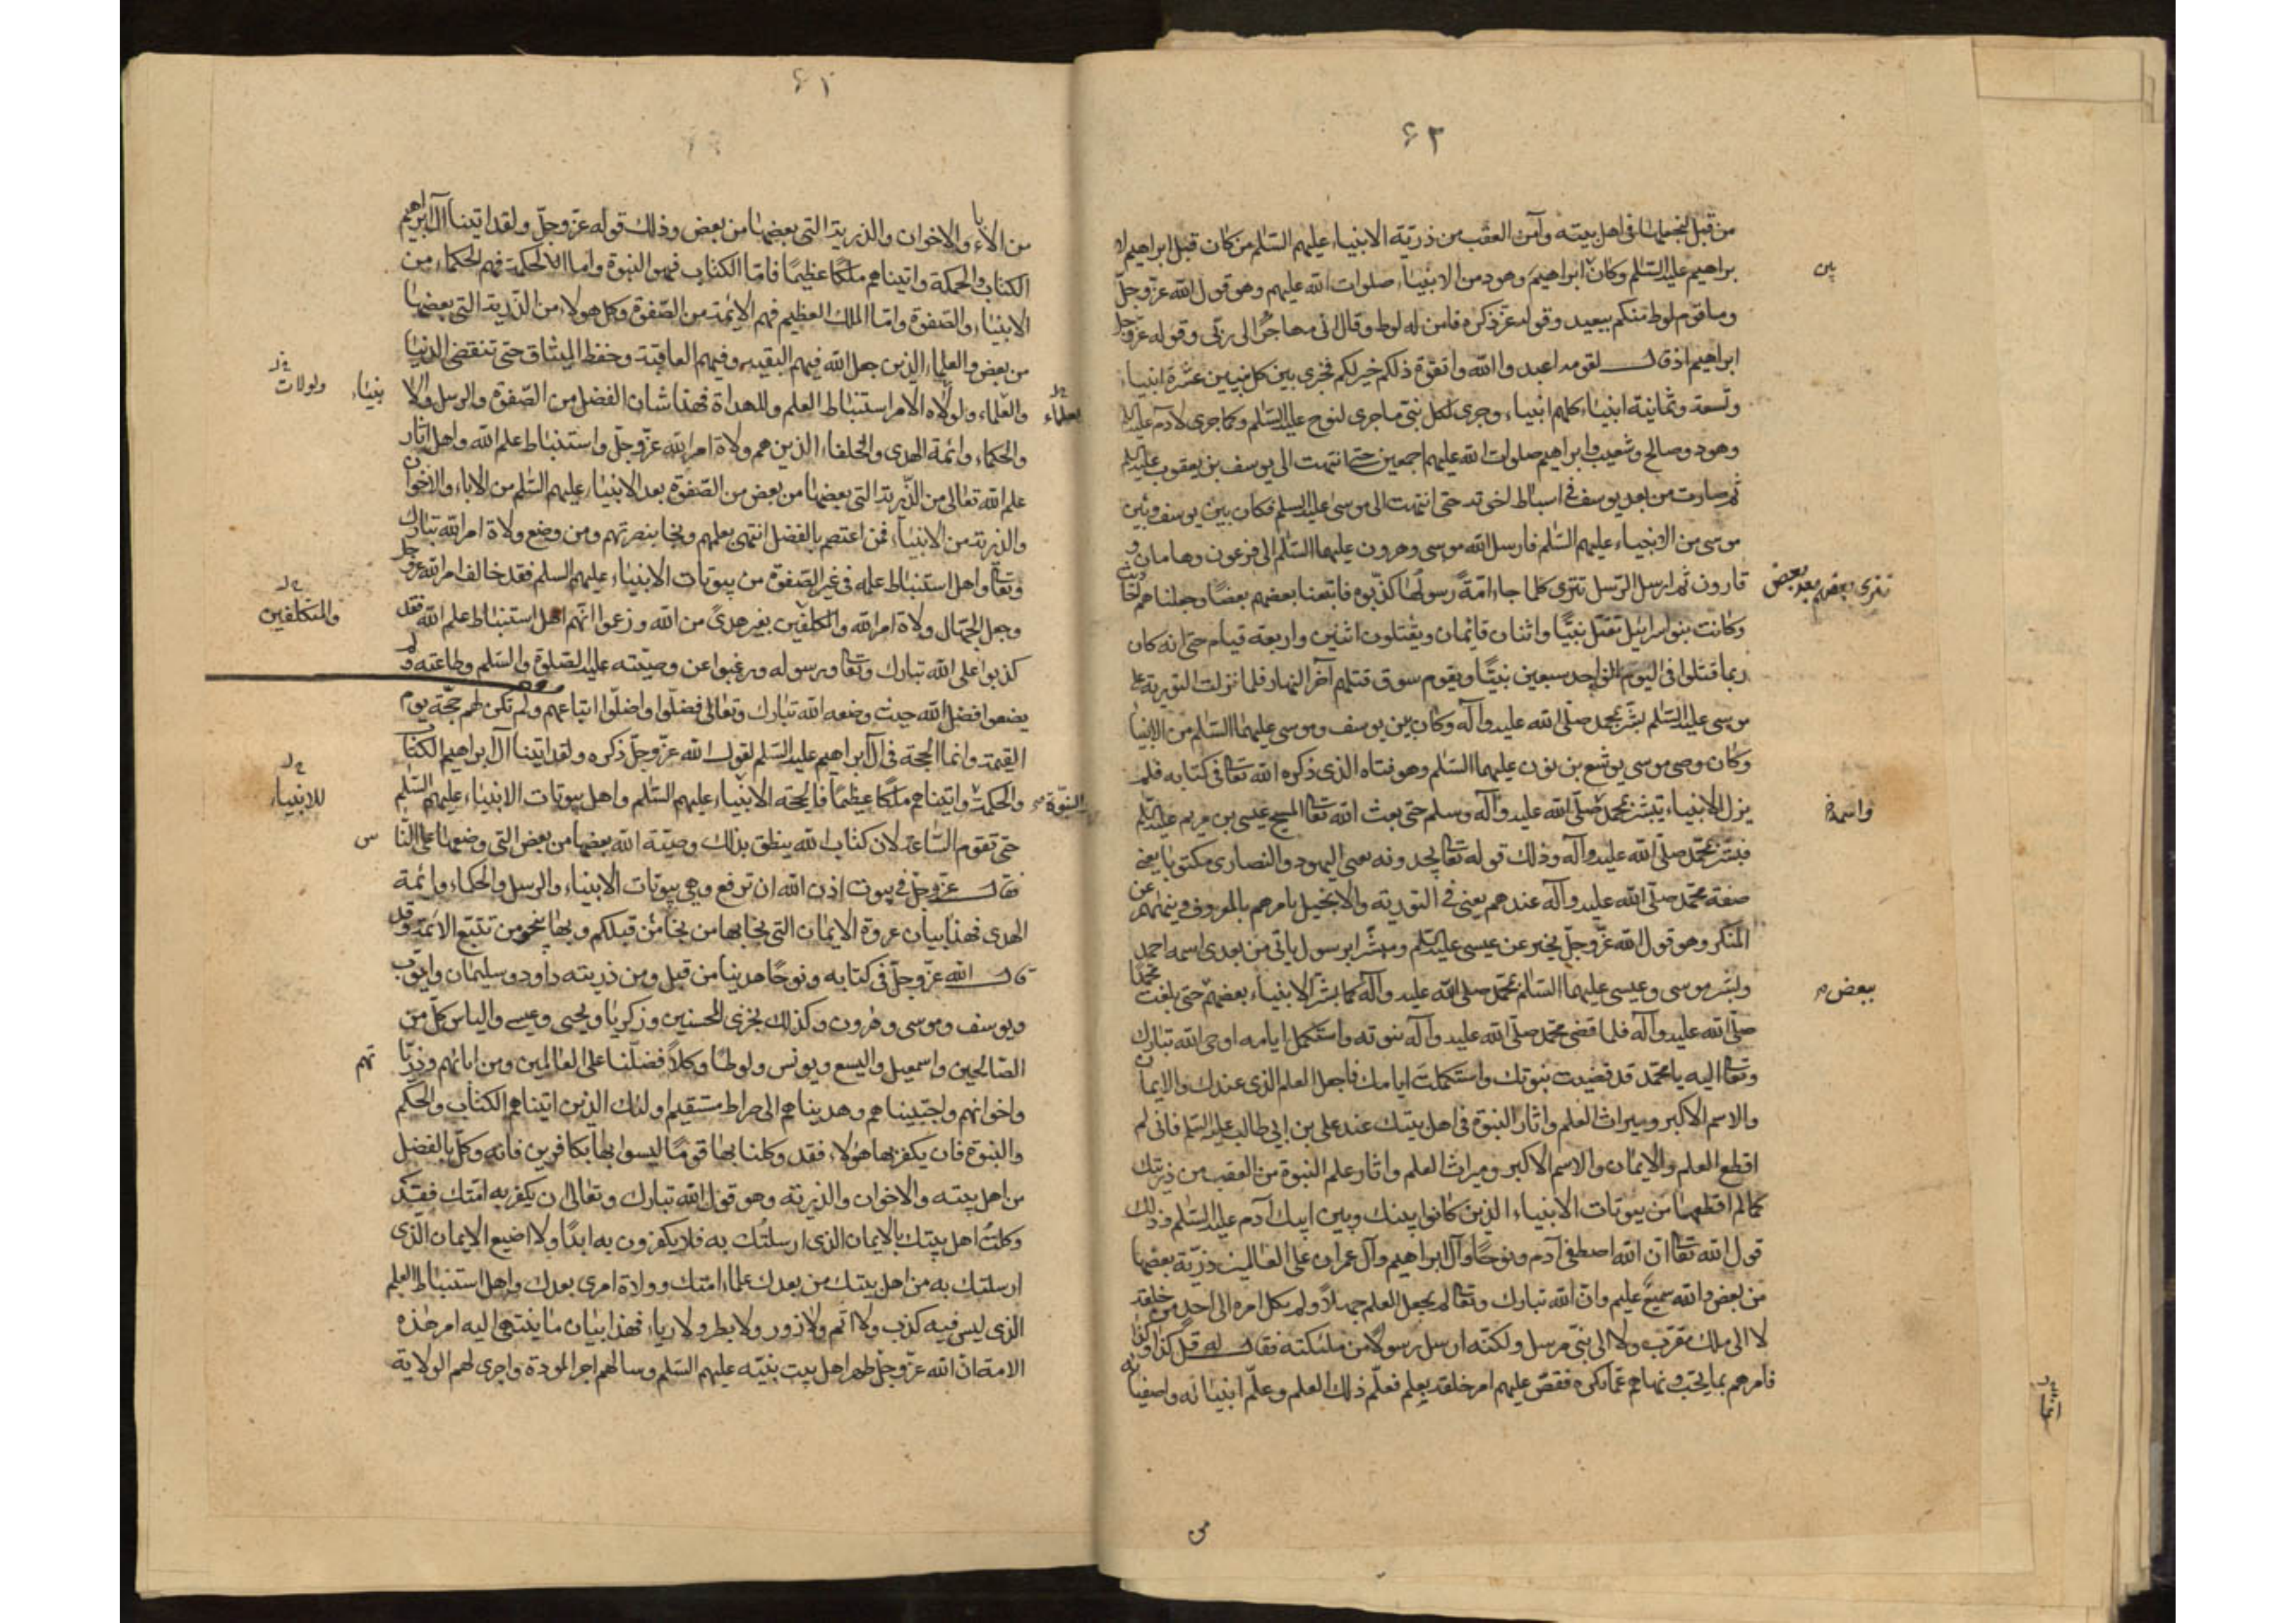 ٤٢
من قبل لنجعلها فى اهل بيته وآمن العقب من ذريّة الانبياء عليهم السّلم من كان قبل ابراهيم لا
براهيم عليه السّلم وكان ابراهيم وهود من الانبياء صلوات الله عليهم وهو قول الله عزّ وجلّ
بين
وما قوم لوط منكم ببعيد وقوله عزّ ذكره فامن له لوط وقال انى مهاجرًا الى ربّى وقوله عزّ وجل
ابراهيم اذ قال لقومه اعبدوا الله واتقوه ذلكم خير لكم فجرى بين كل نبيين عشرة انبياء
وتسعة وثمانية انبياء كلهم انبياء وجرى لكل نبىّ ما جرى لنوح عليه السّلم وكما جرى لادم عليه
وهود وصالح وشعيب وابراهيم صلوات الله عليهم اجمعين حتى انتهت الى يوسف بن يعقوب عليه السلم
ثم صارت من بعد يوسف فى اسباط اخوته حتى انتهت الى موسى عليه السلم فكان بين يوسف وبين
موسى من الانبياء عليهم السّلم فارسل الله موسى وهرون عليهما السّلم الى فرعون وهامان و
قارون ثم ارسل الرّسل تترى كلما جاء امّةً رسولها كذّبوه فاتبعنا بعضهم بعضًا وجعلناهم احاديث
وكانت بنو اسرائيل تقتل نبيًّا واثنان قائمان ويقتلون اثنين واربعة قيام حتى انه كان
ربما قتلوا فى اليوم الواحد سبعين نبيًّا ويقوم سوق قتلهم آخر النهار فلما نزلت التورية على
موسى عليه السّلم بشّر بمحمد صلّى الله عليه وآله وكان بين يوسف وموسى عليهما السّلم من الانبيا
وكان وصى موسى يوشع بن نون عليهما السّلم وهو فتاه الذى ذكره الله تعالى فى كتابه فلم
يزل الانبياء تبشّر بمحمد صلّى الله عليه وآله وسلم حتى بعث الله تعالى المسيح عيسى بن مريم عليه السلم
فبشّر بمحمّد صلّى الله عليه وآله وذلك قوله تعالى يجدونه يعنى اليهود والنصارى مكتوبا يعنى
صفة محمّد صلّى الله عليه وآله عندهم يعنى فى التورية والانجيل يامرهم بالمعروف وينهاهم عن
المنكر وهو قول الله عزّ وجلّ يخبر عن عيسى عليه السلم ومبشّرا برسول ياتى من بعدى اسمه احمد
وبشّر موسى وعيسى عليهما السّلم بمحمّد صلى الله عليه وآله كما بشّر الانبياء بعضهم حتى بلغت محمدًا
ببعض
صلّى الله عليه وآله فلما قضى محمّد صلّى الله عليه وآله نبوته واستكمل ايامه اوحى الله تبارك
وتعالى اليه يا محمّد قد قضيت نبوتك واستكملت ايامك فاجعل العلم الذى عندك والايمان
والاسم الاكبر وميراث العلم واثار النبوة فى اهل بيتك عند على بن ابى طالب عليه السّلم فانى لم
اقطع العلم والايمان والاسم الاكبر وميراث العلم واثار علم النبوة من العقب من ذريتك
كما لم اقطعها من بيوتات الانبياء الذين كانوا بينك وبين ابيك آدم عليه السّلم وذلك
قول الله تعالى انّ الله اصطفى آدم ونوحًا وآل ابراهيم وآل عمران على العالمين ذريّة بعضها
من بعض والله سميع عليم وانّ الله تبارك وتعالى لم يجعل العلم جهلًا ولم يكل امره الى احد من خلقه
لا الى ملك مقرّب ولا الى نبىّ مرسل ولكنّه ارسل رسولا من ملئكته فقال له قل كذا وكذا
فامرهم بما يحبّ ونهاهم عمّا يكره فقصّ عليهم امر خلقه بعلم فعلّم ذلك العلم وعلّم انبيائه واصفيائه
من
٤١
من الاباء والاخوان والذرية التى بعضها من بعض وذلك قوله عزّ وجلّ ولقد اتينا آل ابراهيم
الكتاب والحكمة واتيناهم ملكًا عظيمًا فامّا الكتاب فهو النبوة واما الحكمة فهم الحكماء من
الانبياء والصّفوة وامّا الملك العظيم فهم الائمة من الصّفوة وكل هولاء من الذّرية التى بعضها
من بعض والعلماء الذين جعل الله فيهم البقيه وفيهم العاقبة وحفظ الميثاق حتى تنقضى الدنيا
والعلماء ولولاه الامر استنباط العلم وللهداة فهذا شان الفضل من الصّفوة والرسل والا
نبياء
ولولات
والحكماء وائمة الهدى والخلفاء الذين هم ولاة امر الله عزّ وجلّ واستنباط علم الله واهل اثار
علم الله تعالى من الذّرية التى بعضها من بعض من الصّفوة بعد الانبياء عليهم السّلم من الاباء والاخوان
والذرية من الانبياء فمن اعتصم بالفضل انتهى بعلمهم ونجا بنصرتهم ومن وضع ولاة امر الله تبارك
وتعالى واهل استنباط علمه فى غير الصّفوة من بيوتات الانبياء عليهم السلم فقد خالف امر الله عزّ وجل
وجعل الجهّال ولاة امر الله والمكلفين بغير هدىً من الله وزعموا انّهم اهل استنباط علم الله فقد
والمتكلفين
كذبوا على الله تبارك وتعالى ورسوله ورغبوا عن وصيّته عليه الصلوة والسّلم وطاعته ولم
يضعوا فضل الله حيث وضعه الله تبارك وتعالى فضلّوا واضلّوا اتباعهم ولم تكن لهم حجّة يوم
القيمة وانما الحجة فى آل ابراهيم عليه السّلم لقول الله عزّ وجلّ ذكره ولقد اتينا آل ابراهيم الكتاب
والحكمة واتيناهم ملكًا عظيمًا فالحجّة الانبياء عليهم السّلم واهل بيوتات الانبياء عليهم السّلم
النبوّة
للانبياء
حتى تقوم السّاعة لان كتاب الله ينطق بذلك وصيّة الله بعضها من بعض التى وضعها على النّا
س
فقال عزّ وجلّ فى بيوت اذن الله ان ترفع وهى بيوتات الانبياء والرسل والحكماء وائمة
الهدى فهذا بيان عروة الايمان التى نجا بها من نجا من قبلكم وبها ينجو من تتبّع الائمة وقد
قال الله عزّ وجلّ فى كتابه ونوحًا هدينا من قبل ومن ذريته داود وسليمان وايوب
ويوسف وموسى وهرون وكذلك نجزى المحسنين وزكريا ويحيى وعيسى والياس كلّ من
الصّالحين واسمعيل واليسع ويونس ولوطًا وكلاً فضّلنا على العالمين ومن ابائهم وذريّا
تهم
واخوانهم واجتبيناهم وهديناهم الى صراط مستقيم اولئك الذين اتيناهم الكتاب والحكم
والنبوة فان يكفر بها هؤلاء فقد وكلنا بها قومًا ليسوا بها بكافرين فانه وكّل بالفضل
من اهل بيته والاخوان والذرية وهو قول الله تبارك وتعالى ان يكفر به امّتك فقد
وكلتُ اهل بيتك بالايمان الذى ارسلتُك به فلا يكفرون به ابدًا ولا اضيع الايمان الذى
ارسلتك به من اهل بيتك من بعدك علماء امتك وولاة امرى بعدك واهل استنباط العلم
الذى ليس فيه كذب ولا اثم ولا زور ولا بطر ولا رياء فهذا بيان ما ينتهى اليه امر هذه
الامة انّ الله عزّ وجلّ طهر اهل بيت نبيّه عليهم السّلم وسالهم اجر المودة واجرى لهم الولاية